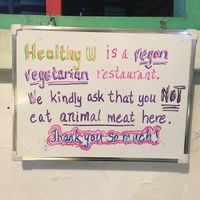 Healthy U is a vegan
vegetarian restaurant.
We kindly ask that you NOT
eat animal meat here.
Thank you so much!